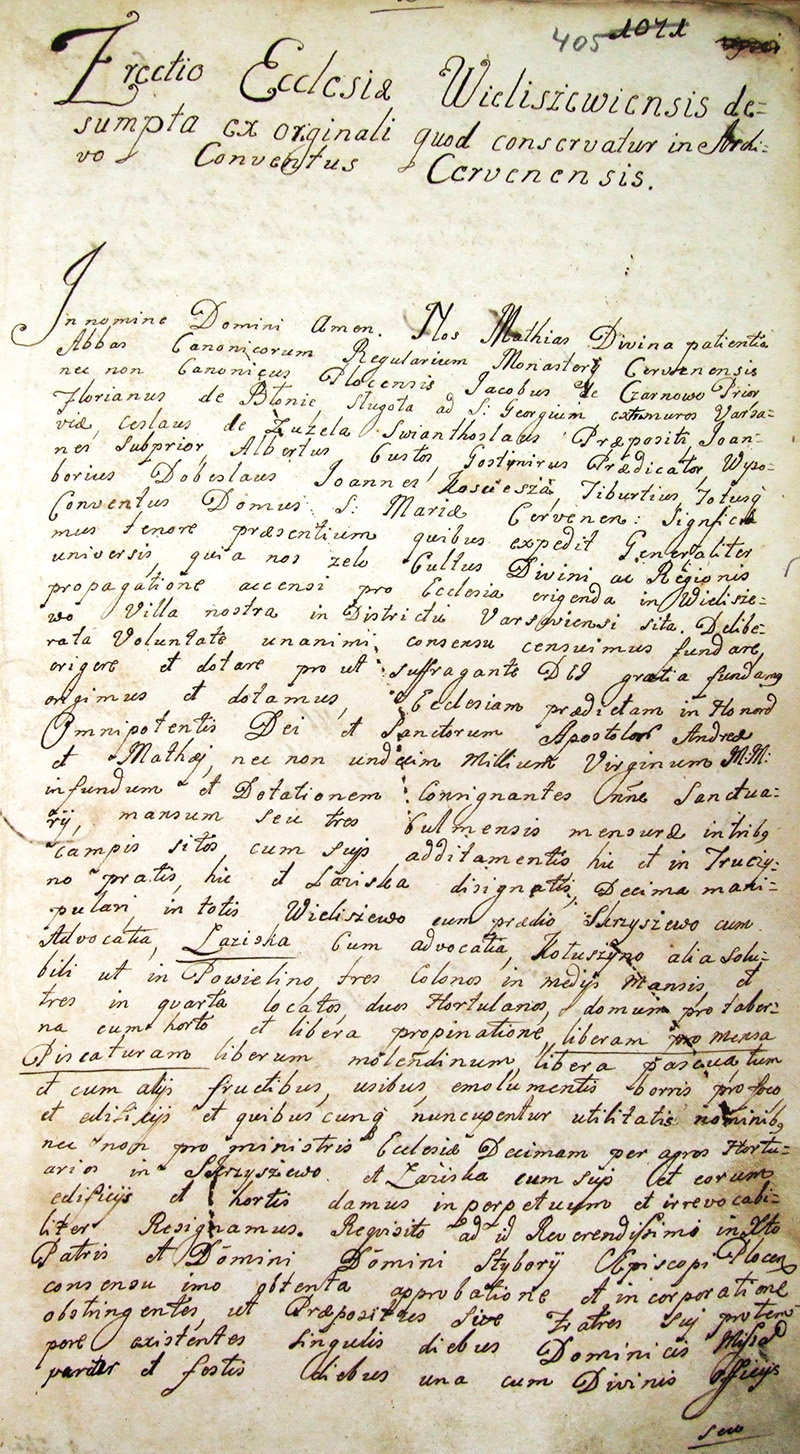 405 1071
Erectio Ecclesiæ Wieliszewiensis de=
sumpta ex orginali quod conservatur in Archi=
vo Conventus Cervenensis.
In nomine Domini Amen. Nos Mathias Divina patientia
Abbas Canonicorum Regularium Monastery Cervenensis
nec non Canonicus Plocensis Jacobus de Czarnowo Prior
Florianus de Błonie, Sługota ad S: Georgium extra muros Varsa=
viæ, Ceslaus de Zuzela Swianthoslaus Præpositi, Joan=
nes Subprior, Albertus Custos, Gostinirus Prædicator, Wyso=
borius Dobeslaus Joannes Kosciesza, Tiburtius, Totusq
Conventus Domus S: Mariæ Cervenen: Significa
mus tenore præsentium quibus expedit Generaliter
universis, quia nos zelo Cultus Divini ac Regionis
propagatione accensi pro Ecclesia erigenda in Wielisze=
wo Villa nostra in Districtu Varsaviensi sita. Delibe=
rata Voluntate unanimi consensu censuimus fundare,
erigere et dotare pro ut suffragante DEI gratia fundamq
erigimus et dotamus, Ecclesiam prædictam in Honorē
Omnipotentis Dei et Sanctorum Apostolor Andreæ
et Mathæj, nec non undecim Millium Virginum M.M:
in fundum et Dotationem Consignantes nn̄e Sanctua=
rij, mansum seu tres Culmensis mensuræ in tribq
campis sitos, cum suis additamentis hic et in Truciy=
no pratis, hic et Łaziska disignatis, Decima mani=
pulari, in totis Wieliszewo cum prædio Skrzyszewo cum
Advocatia, Laziska Cum advocatia, Kotuszyno alia solu=
bili ut in Powielino, tres Colonos in medijs Mansis, et
tres in quarta locatos, duos Hortulanos, domum pro taber=
na cum horto et libera propinatione, liberam pro mensa
Piscaturam liberum molendinum, libera pascua tum
et cum alijs fructibus, usibus, emolumentis borris pro foco,
et edificijs et quibuscunq nuncupentur utilitatis nominibq
nec non pro ministris Ecclesiæ Decimam per agros Hortu=
arios in Skrzyszewo et Łaziska cum suis et eorum
edificijs et hortis damus in perpetuum et irrevocabi=
liter Resignamus. Reqvisito ad id Reverendissimo in Xto
Patris et Domini Domini Styborij Episcopi Plocen
consensu imo obtenta approbatione et incorporatione
obstringentes, ut Præpositus sive Fratres sui pro tem=
pore existentes singulis diebus Dominicis Missā
pariter et festis diebus una cum Divinis Officijs
seu